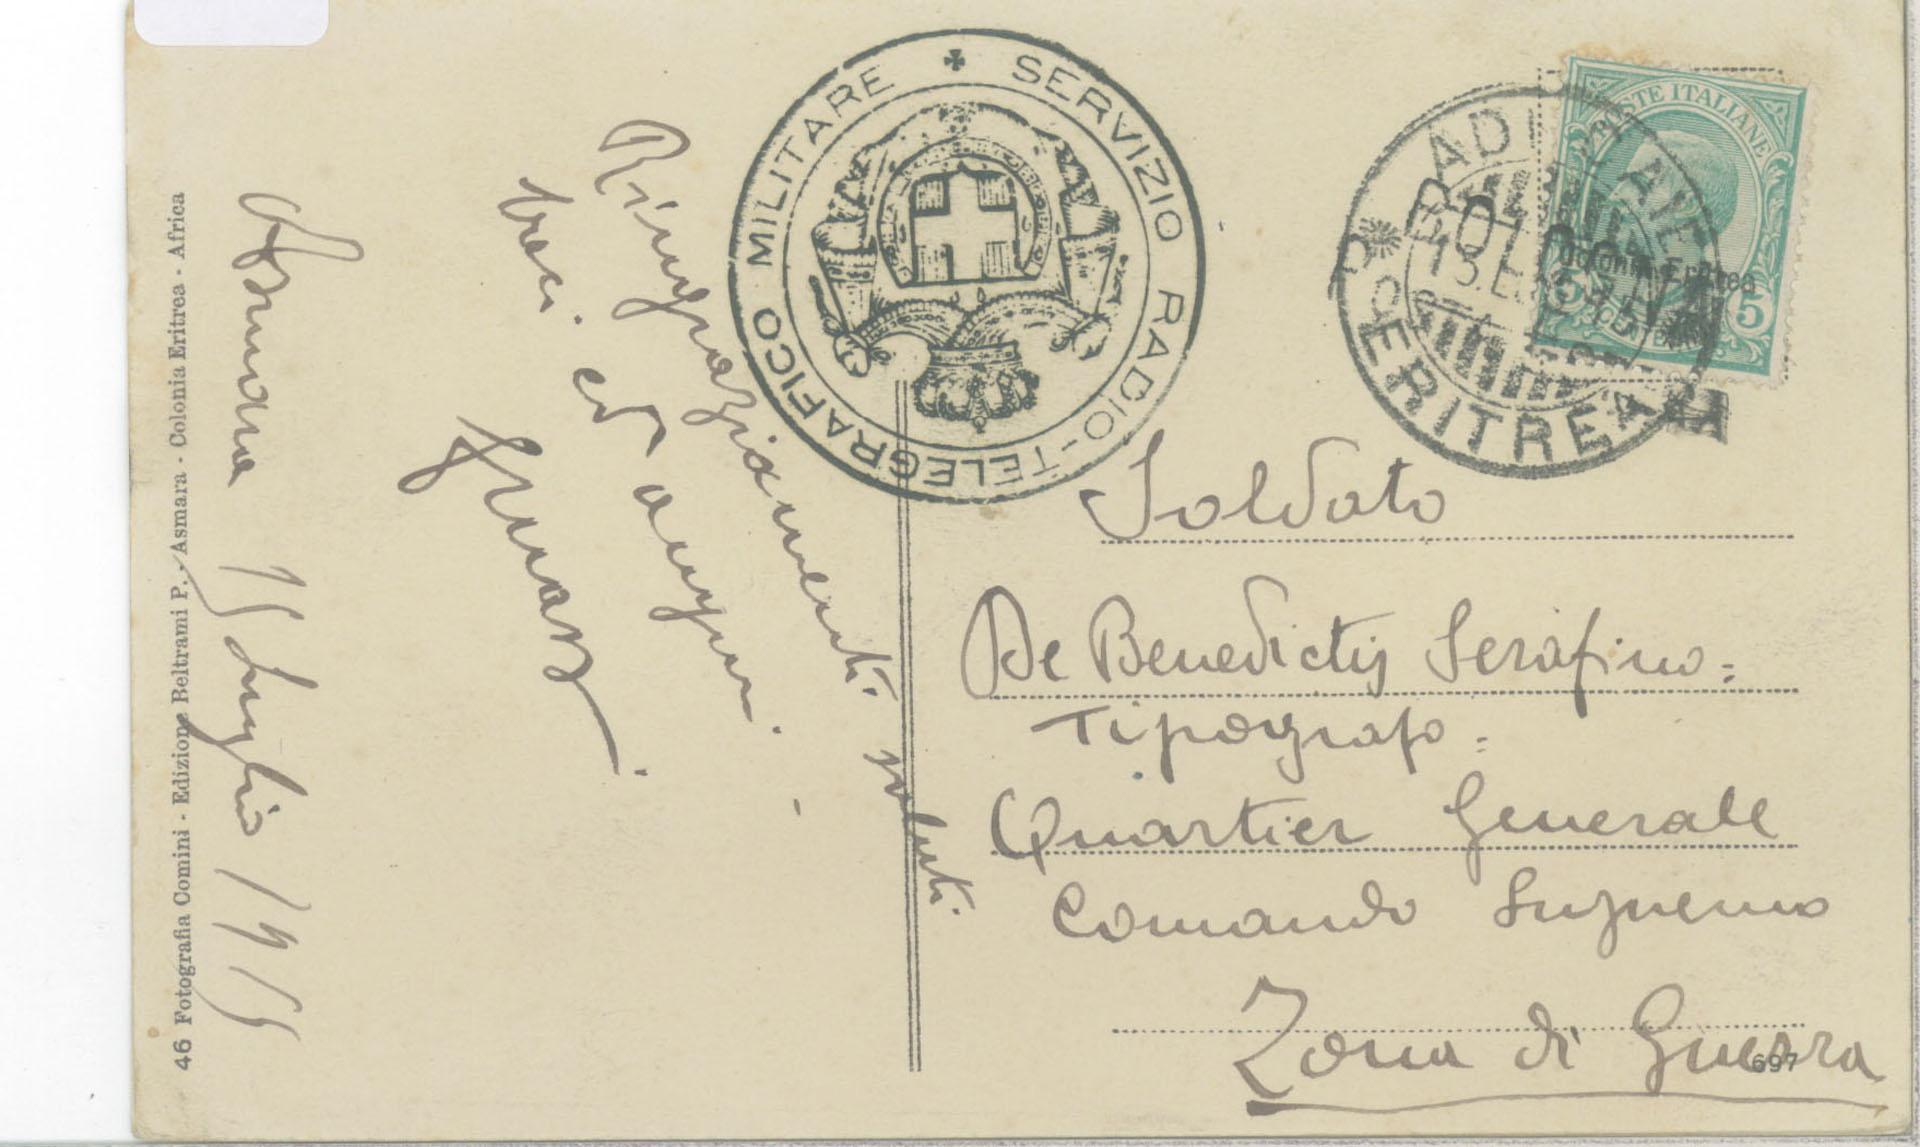 46 Fotografia Comini - Edizione Beltrami P. - Asmara - Colonia Eritrea - Africa
Asmara 15 Luglio 1915
Ringraziamenti. saluti.
baci. ed auguri.
SERVIZIO RADIO-TELEGRAFICO MILITARE
POSTE ITALIANE
Colonia Eritrea
5 5
ERITREA
Soldato
De Benedictis Serafino =
Tipografo =
Quartier Generale
Comando Supremo
Zona di Guerra
697